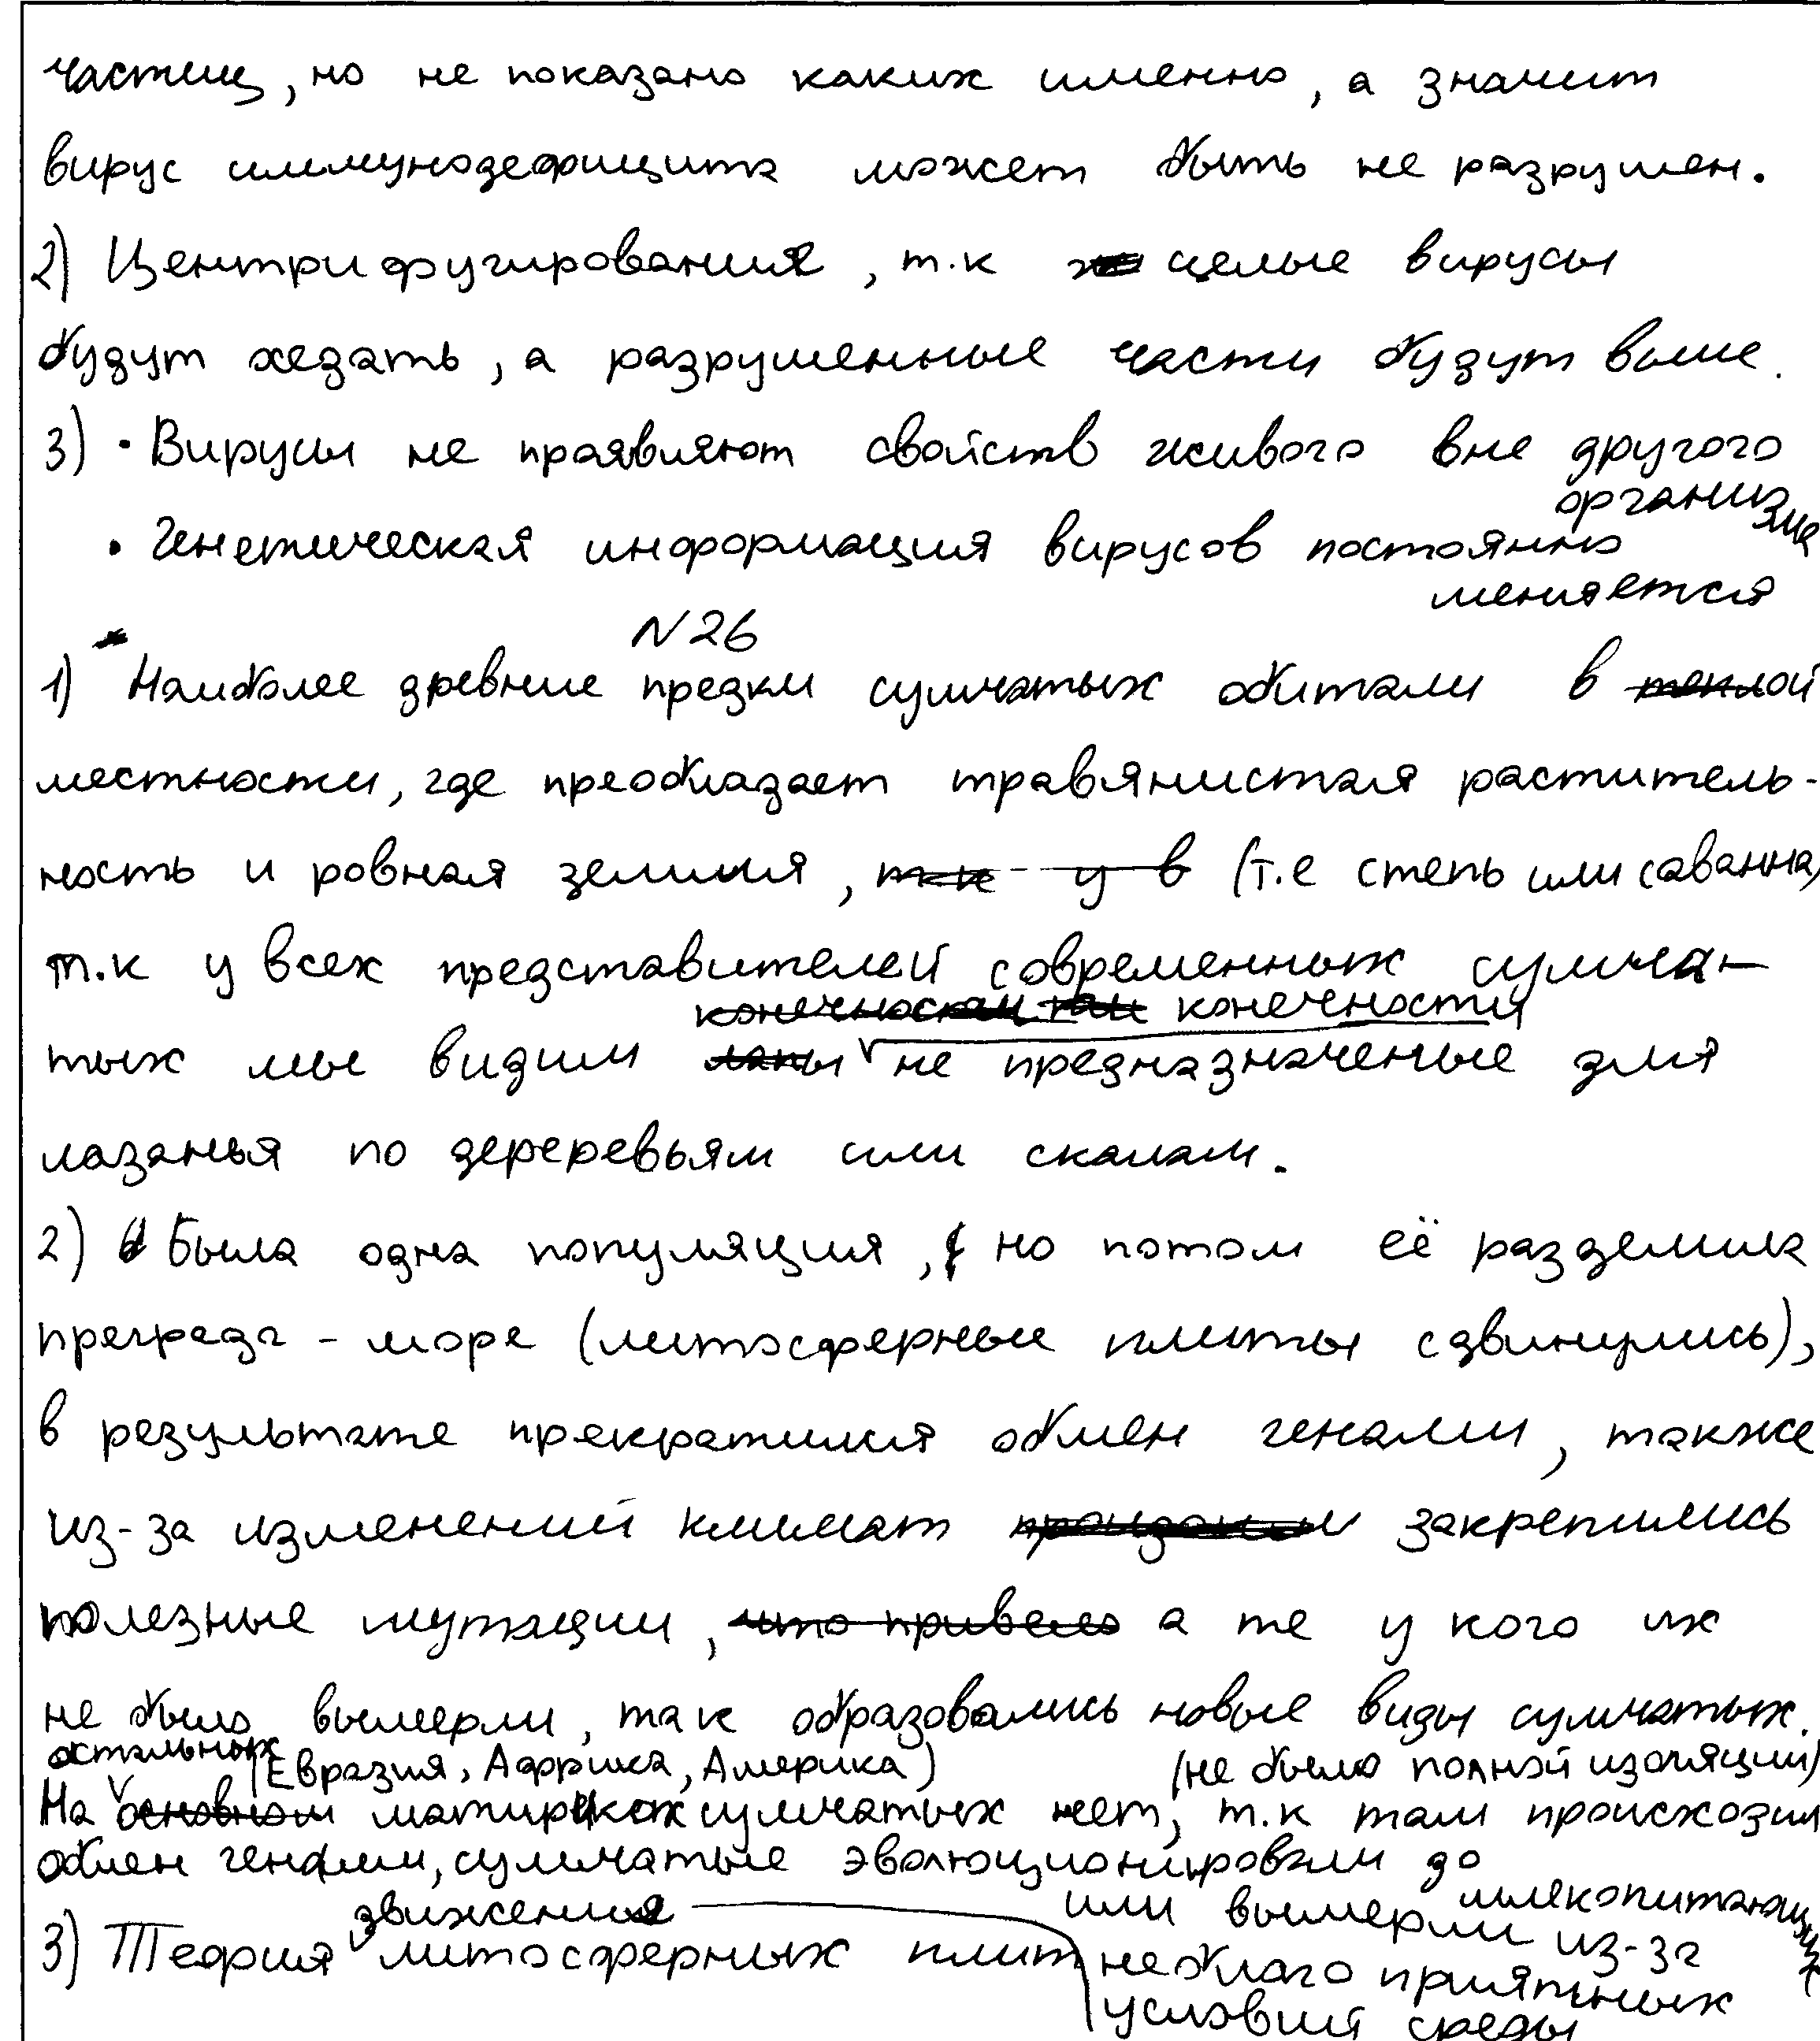 частиц, но не показано каких именно, а значит
вирус иммунодефицита может быть не разрушен.
2) Центрифугирования, т.к целые вирусы
будут хедать, а разрушенные части будут выше.
3) • Вирусы не проявляют свойств живого вне другого
организма
• Генетическая информация вирусов постоянно
меняется
N26
1) Наиболее древние предки сумчатых обитали в теплой
местности, где преобладает травянистая раститель-
ность и ровная землия, т.к у в (т.е степь или саванна)
т.к у всех представителей современных сумча-
конечности
тых мы видим лапы не предназначеные для
лазанья по дереревьям или скалам.
2) Была одна популяция, но потом её разделила
преграда - море (литосферные плиты сдвинулись),
в результате прекратился обмен генами, также
из-за изменений климат закрепились
полезные мутации, что привело а те у кого их
не было вымерли, так образовались новые виды сумчатых.
остальных (Евразия, Африка, Америка) (не было полной изоляции)
На основном матириках сумчатых нет, т.к там происходил
обмен генами, сумчатые эволюционировали до
млекопитающих
или вымерли из-за
неблагоприятных
условий среды
движения
3) Теория литосферных плит